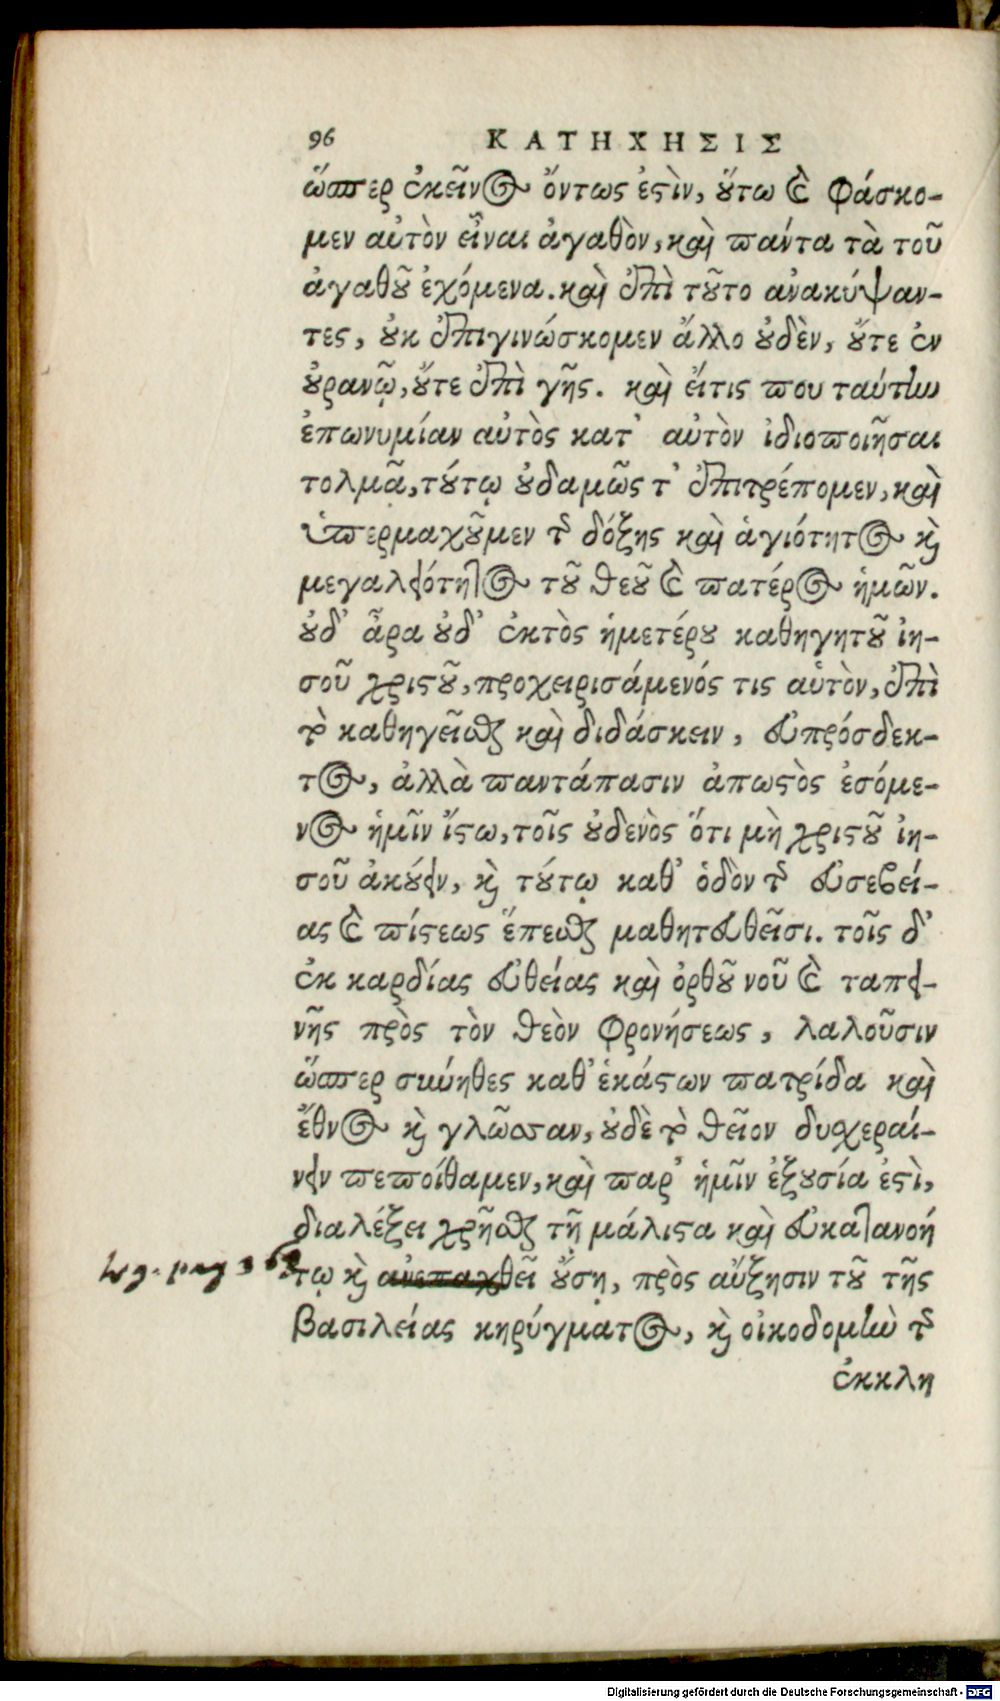 96 ΚΑΤΗΧΗΣΙΣ
ὥσπερ ἐκεῖνος ὄντως ἐστὶν, οὕτω καὶ φάσκο-
μεν αὐτὸν εἶναι ἀγαθὸν, καὶ πάντα τὰ τοῦ
ἀγαθοῦ ἐχόμενα. καὶ ἐπὶ τοῦτο ἀνακύψαν-
τες, οὐκ ἐπιγινώσκομεν ἄλλο οὐδὲν, οὔτε ἐν
οὐρανῷ, οὔτε ἐπὶ γῆς. καὶ εἴτις που ταύτην
ἐπωνυμίαν αὐτὸς κατ' αὐτὸν ἰδιοποιῆσαι
τολμᾷ, τούτῳ οὐδαμῶς τ' ἐπιτρέπομεν, καὶ
ὑπερμαχοῦμεν τῆς δόξης καὶ ἁγιότητος καὶ
μεγαλειότητος τοῦ θεοῦ καὶ πατέρος ἡμῶν.
οὐδ' ἆρα οὐδ' ἐκτὸς ἡμετέρου καθηγητοῦ ἰη-
σοῦ χριστοῦ, προχειρισάμενός τις αὑτὸν, ἐπὶ
τὸ καθηγεῖσθαι καὶ διδάσκειν, εὐπρόσδεκ-
τος, ἀλλὰ παντάπασιν ἀπωστὸς ἐσόμε-
νος ἡμῖν ἴστω, τοῖς οὐδενὸς ὅτι μὴ χριστοῦ ἰη-
σοῦ ἀκούειν, καὶ τούτῳ καθ' ὁδὸν τῆς εὐσεβεί-
ας καὶ πίστεως ἕπεσθαι μαθητευθεῖσι. τοῖς δ'
ἐκ καρδίας εὐθείας καὶ ὀρθοῦ νοῦ καὶ ταπει-
νῆς πρὸς τὸν θεὸν φρονήσεως, λαλοῦσιν
ὥσπερ σύνηθες καθ' ἑκάστων πατρίδα καὶ
ἔθνος καὶ γλῶσσαν, οὐδὲ τὸ θεῖον δυχεραί-
νειν πεποίθαμεν, καὶ παρ' ἡμῖν ἐξουσία ἐστὶ,
διαλέξει χρῆσθαι τῇ μάλιστα καὶ εὐκατανοή
τῳ καὶ ἀνεπαχθεῖ οὔσῃ, πρὸς αὔξησιν τοῦ τῆς
βασιλείας κηρύγματος, καὶ οἰκοδομὴν τῆς
ἐκκλη
Digitalisierung gefördert durch die Deutsche Forschungsgemeinschaft - DFG